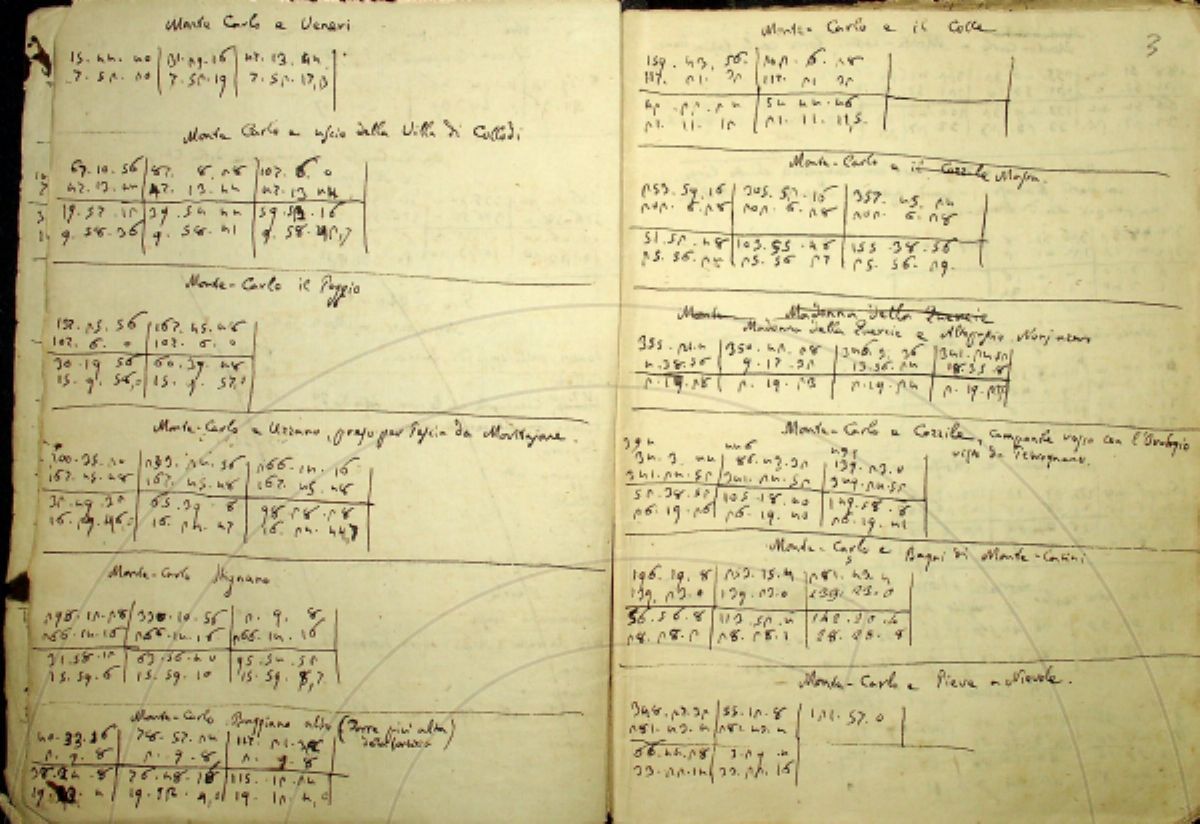 3
Monte Carlo e Veneri
15. 44. 40 31. 29. 16 47. 13. 44
7. 52. 20 7. 52. 19 7. 52. 17,3
Monte Carlo e uscio della Villa di Collodi
67. 10. 56 87. 8. 28 107. 6. 0
47. 13. 44 47. 13. 44 47. 13. 44
19. 57. 12 39. 54. 44 59. 52. 16
9. 58. 36 9. 58. 41 9. 58. 42,7
Monte-Carlo il Poggio
137. 25. 56 167. 45. 48
107. 6. 0 107. 6. 0
30. 19. 56 60. 39. 48
15. 9. 58,0 15. 9. 57,0
Monte-Carlo e Uzzano, preso per Pescia da Montecarlo.
200. 35. 20 233. 24. 56 266. 14. 16
167. 45. 48 167. 45. 48 167. 45. 48
32. 49. 32 65. 39. 8 98. 28. 28
16. 24. 46,0 16. 24. 47 16. 24. 44,7
Monte-Carlo Stignano
298. 12. 28 330. 10. 56 2. 9. 8
266. 14. 16 266. 14. 16 266. 14. 16
31. 58. 12 63. 56. 40 95. 54. 52
15. 59. 6 15. 59. 10 15. 59. 8,7
Monte-Carlo Buggiano alto (Torre più alta
40. 33. 16 78. 57. 24 117. 21. 32
2. 9. 8 2. 9. 8 2. 9. 8
38. 24. 8 76. 48. 16 115. 12. 24
19. 12. 4 19. 12. 4,0 19. 12. 4,0
Monte-Carlo e il Colle
159. 43. 56 202. 6. 28
117. 21. 32 117. 21. 32
42. 22. 24 84 44 46
21. 11. 12 21. 11. 11,5
Monte-Carlo e il Cozzile Massa.
253. 59. 16 305. 52. 16 357. 45. 24
202. 6. 28 202. 6. 28 202. 6. 28
51. 52. 48 103. 45. 48 155. 38. 56
25. 56. 24 25. 56 27 25. 56. 29.
Monte Madonna della Quercie
Madonna della Quercie e Altopascio
355. 21. 4 350. 42. 28 346. 3. 36 341. 24. 52
4. 38. 56 9. 17. 32 13. 56. 24 18. 35. 8
2. 19. 28 2. 19. 23 2. 19. 24 2. 19. 23
Monte-Carlo e Cozzile, campanile rosso con l'Orologio
394 446 499
34. 3. 44 86. 43. 32 139. 23. 0
341. 24. 52 341. 24. 52 341. 24. 52
52. 38. 52 105. 18. 40 157. 58. 8
26. 19. 26 26. 19. 40 26. 19. 41
Monte-Carlo e Bagni di Monte-Catini
196. 19. 8 253. 15. 4 281. 43. 4
139. 23. 0 139. 23. 0 139. 23. 0
56. 56. 8 113. 52. 4 142. 20. 4
28. 28. 2 28. 28. 1 28. 28. 8
Monte-Carlo e Pieve a Nievole.
348. 27. 32 55. 12. 8 121. 57. 0
281. 43. 4 281. 43. 4
66. 44. 28
33. 22. 14 33. 22. 16